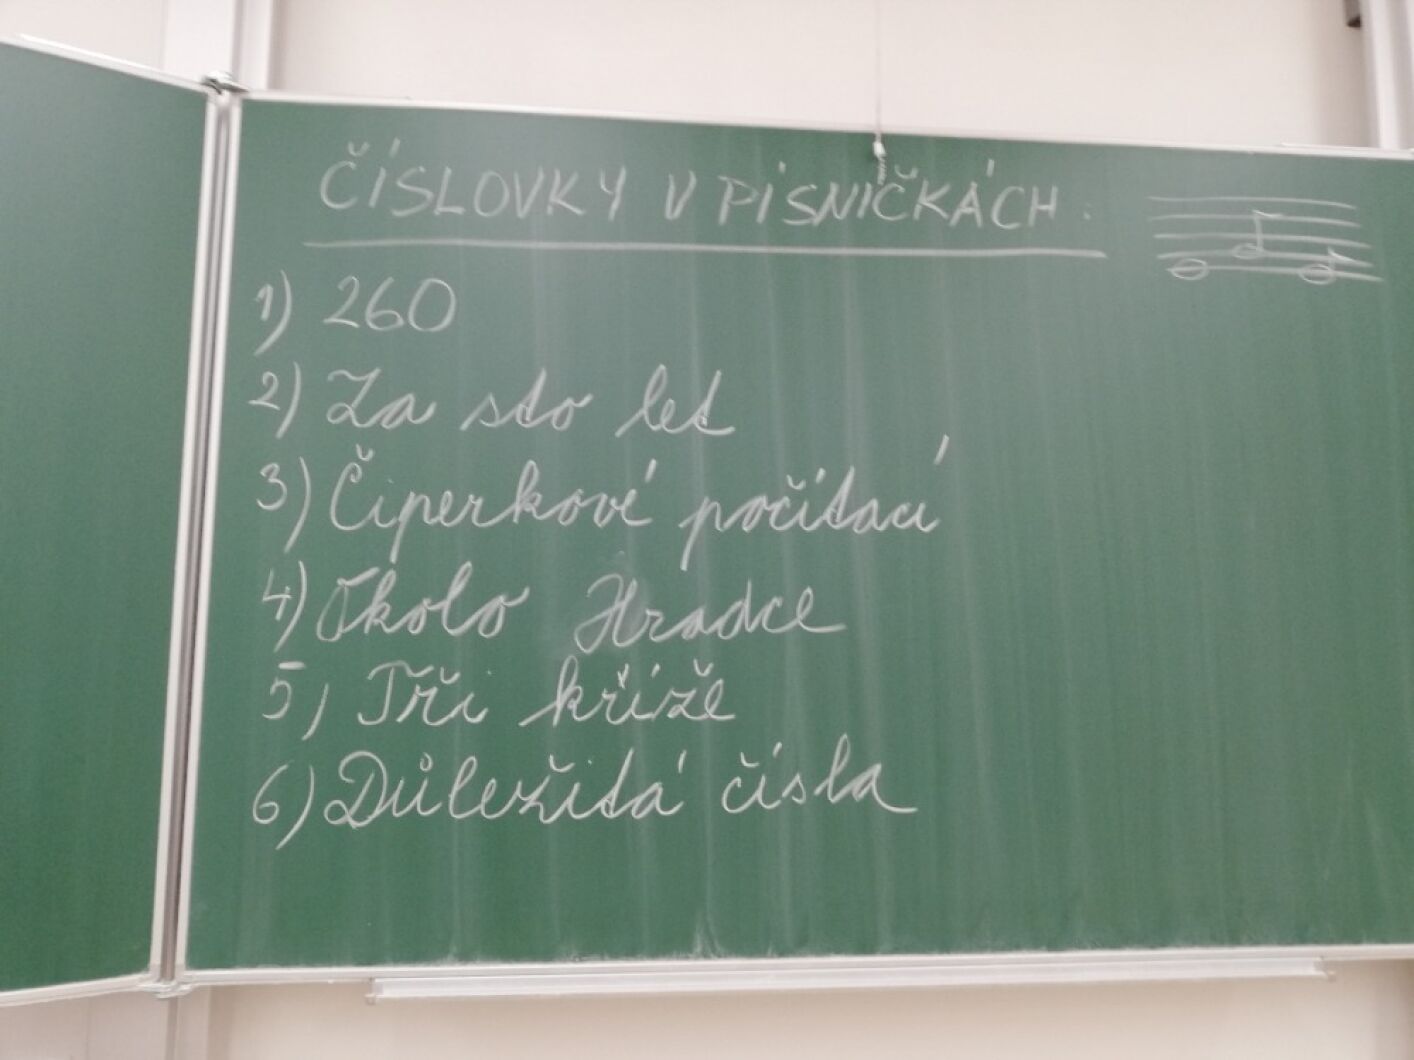 ČÍSLOVKY V PÍSNIČKÁCH:
1) 260
2) Za sto let
3) Čiperkové počítací
4) Okolo Hradce
5) Tři kříže
6) Důležitá čísla